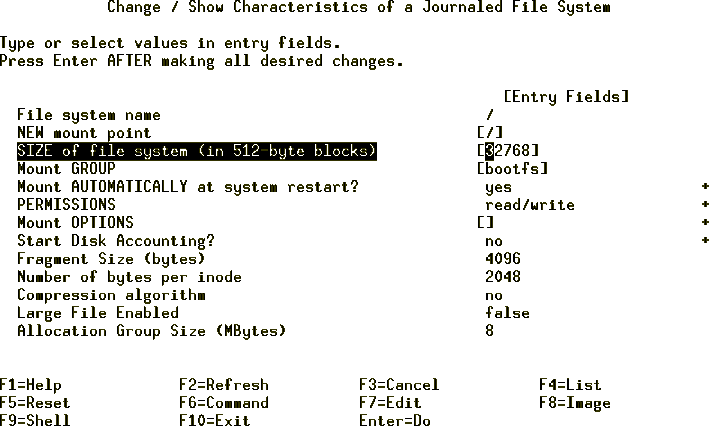 Change / Show Characteristics of a Journaled File System
Type or select values in entry fields.
Press Enter AFTER making all desired changes.
[Entry Fields]
File system name /
NEW mount point [/]
SIZE of file system (in 512-byte blocks) [32768]
Mount GROUP [bootfs]
Mount AUTOMATICALLY at system restart? yes +
PERMISSIONS read/write +
Mount OPTIONS [] +
Start Disk Accounting? no +
Fragment Size (bytes) 4096
Number of bytes per inode 2048
Compression algorithm no
Large File Enabled false
Allocation Group Size (MBytes) 8
F1=Help F2=Refresh F3=Cancel F4=List
F5=Reset F6=Command F7=Edit F8=Image
F9=Shell F10=Exit Enter=Do